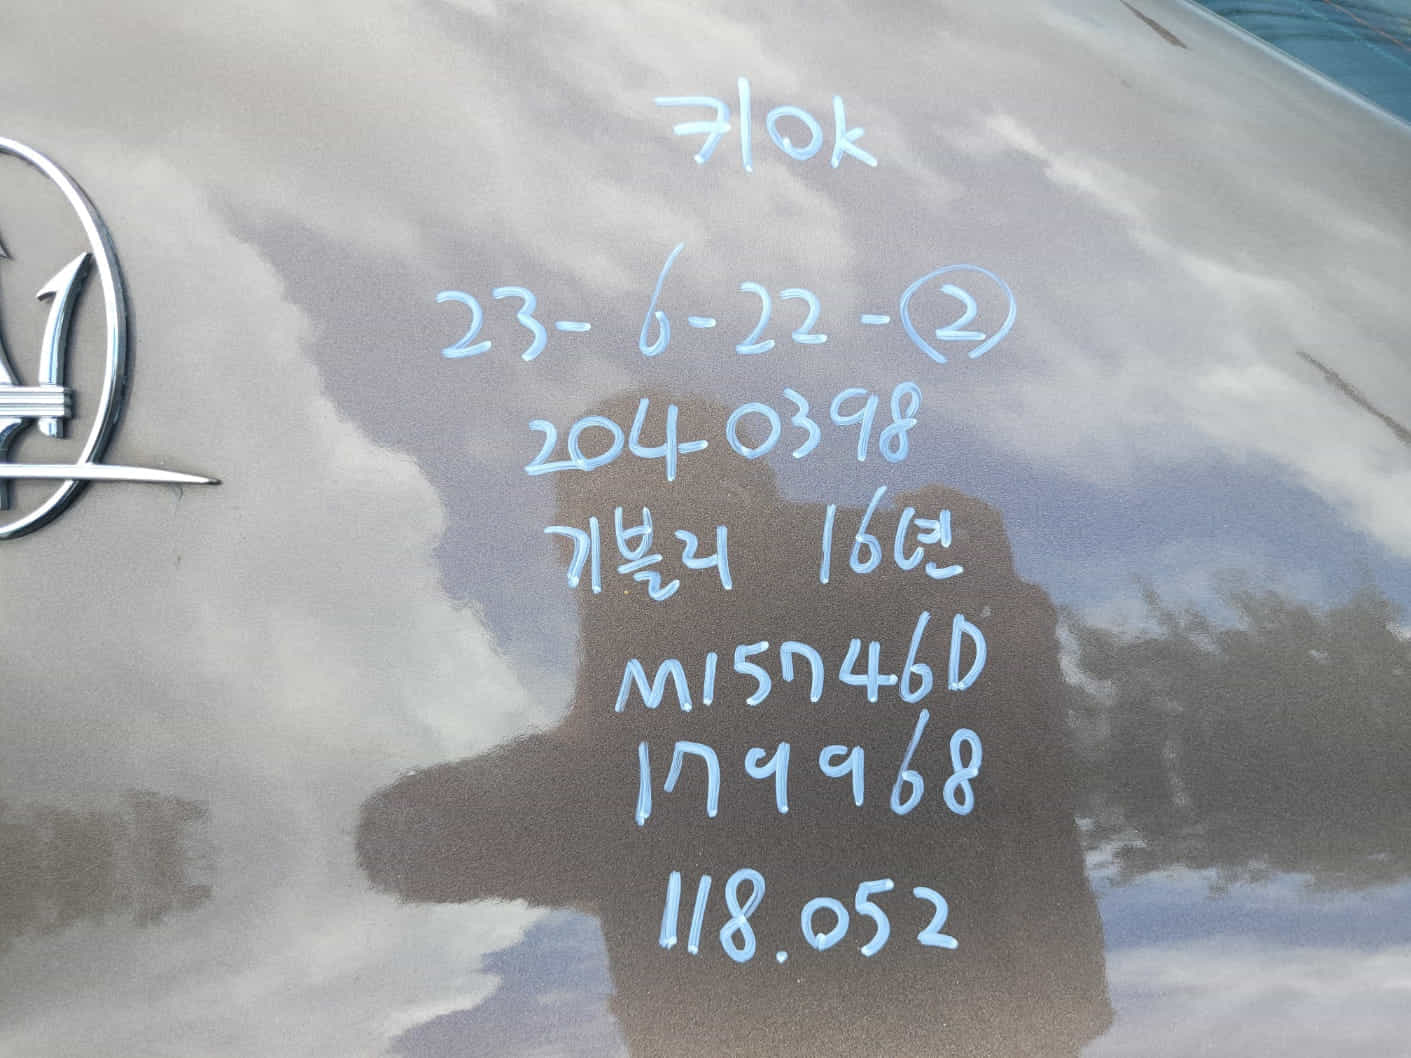 키ok
23-6-22-②
204-0398
기블리 16년
M15746D
179968
118.052